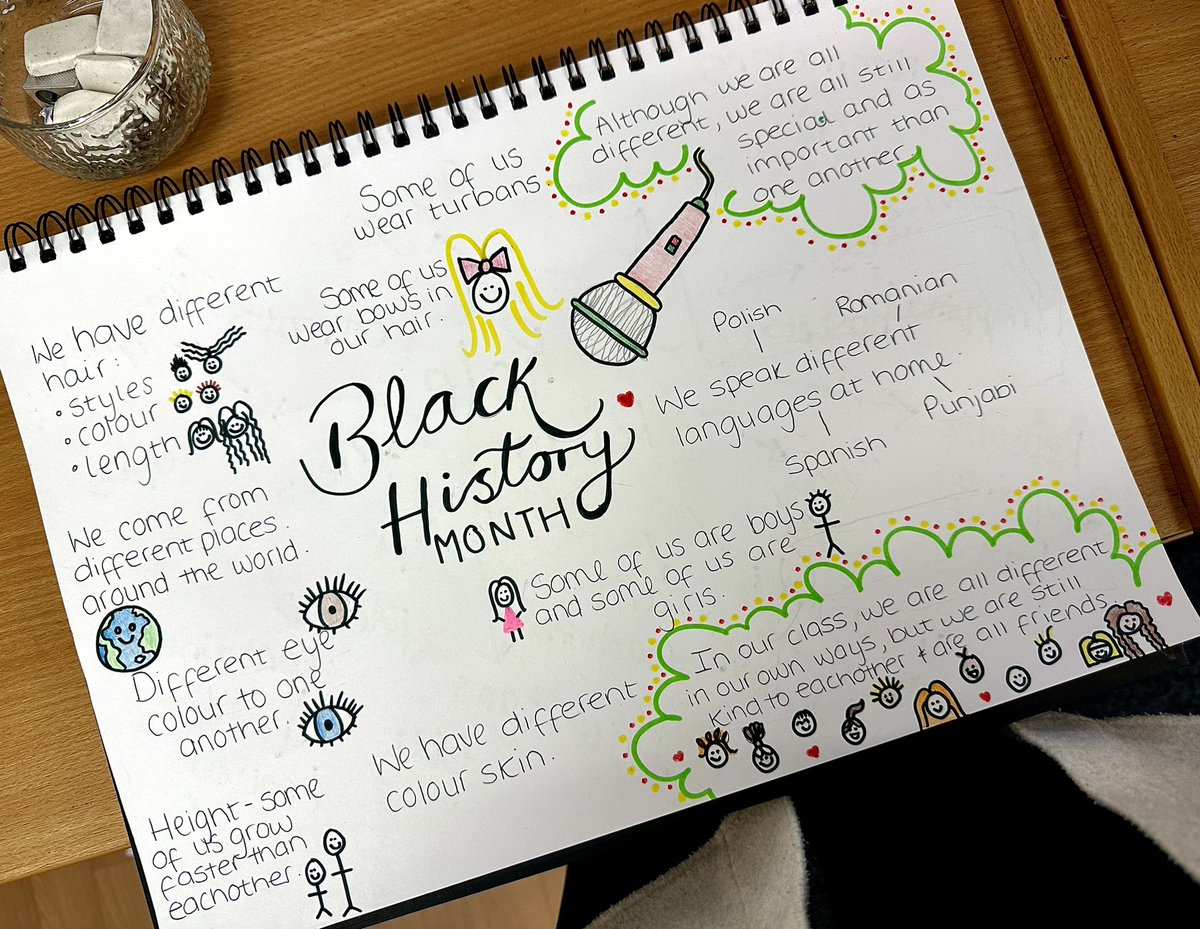 Although we are all
different, we are all still
special and as
important than
one another.
Some of us
wear turbans
Some of us
wear bows in
our hair.
We have different
hair:
• styles
• colour
• length
Black
History
MONTH
Polish
Romanian
We speak different
languages at home.
Punjabi
Spanish
We come from
different places
around the world.
Some of us are boys
and some of us are
girls.
Different eye
colour to one
another.
We have different
colour skin.
In our class, we are all different
in our own ways, but we are still
kind to eachother & are all friends
Height - some
of us grow
faster than
eachother.